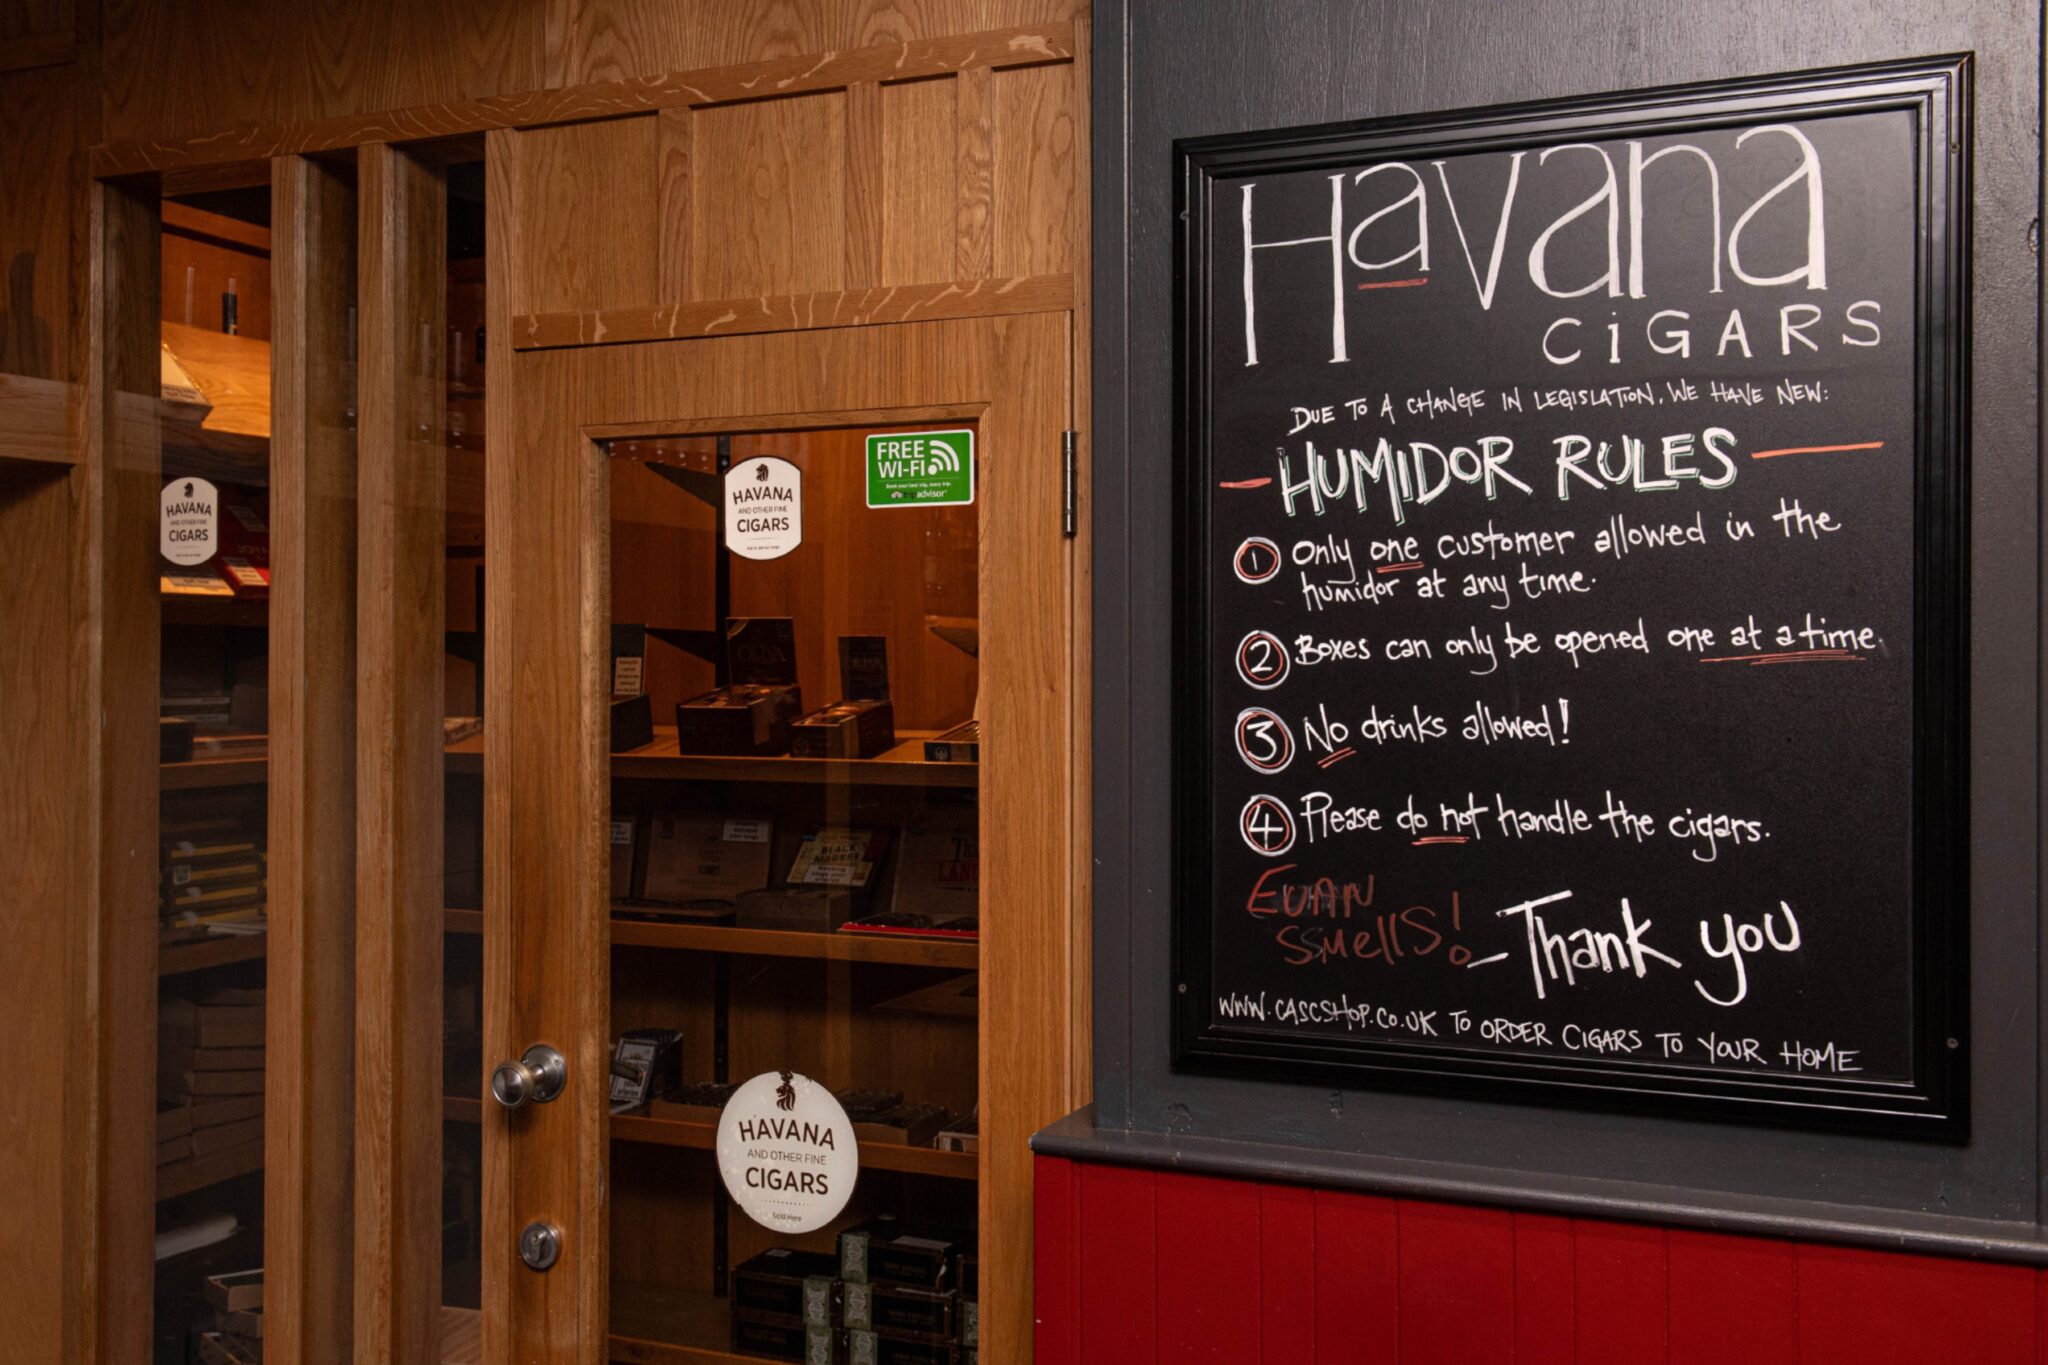 HAVANA
AND OTHER FINE
CIGARS
HAVANA
AND OTHER FINE
CIGARS
FREE
WI-FI
Book your best trip, every trip.
tripadvisor
BLACK
MARKET
Smoking
clogs your
arteries
HAVANA
AND OTHER FINE
CIGARS
Sold Here
Havana
CiGARS
DUE TO A CHANGE IN LEGISLATION, WE HAVE NEW:
HUMIDOR RULES
1 Only one customer allowed in the
humidor at any time.
2 Boxes can only be opened one at a time.
3 No drinks allowed!
4 Please do not handle the cigars.
EUAN
SMellS!
- Thank you
WWW.CASCSHOP.CO.UK TO ORDER CIGARS TO YOUR HOME